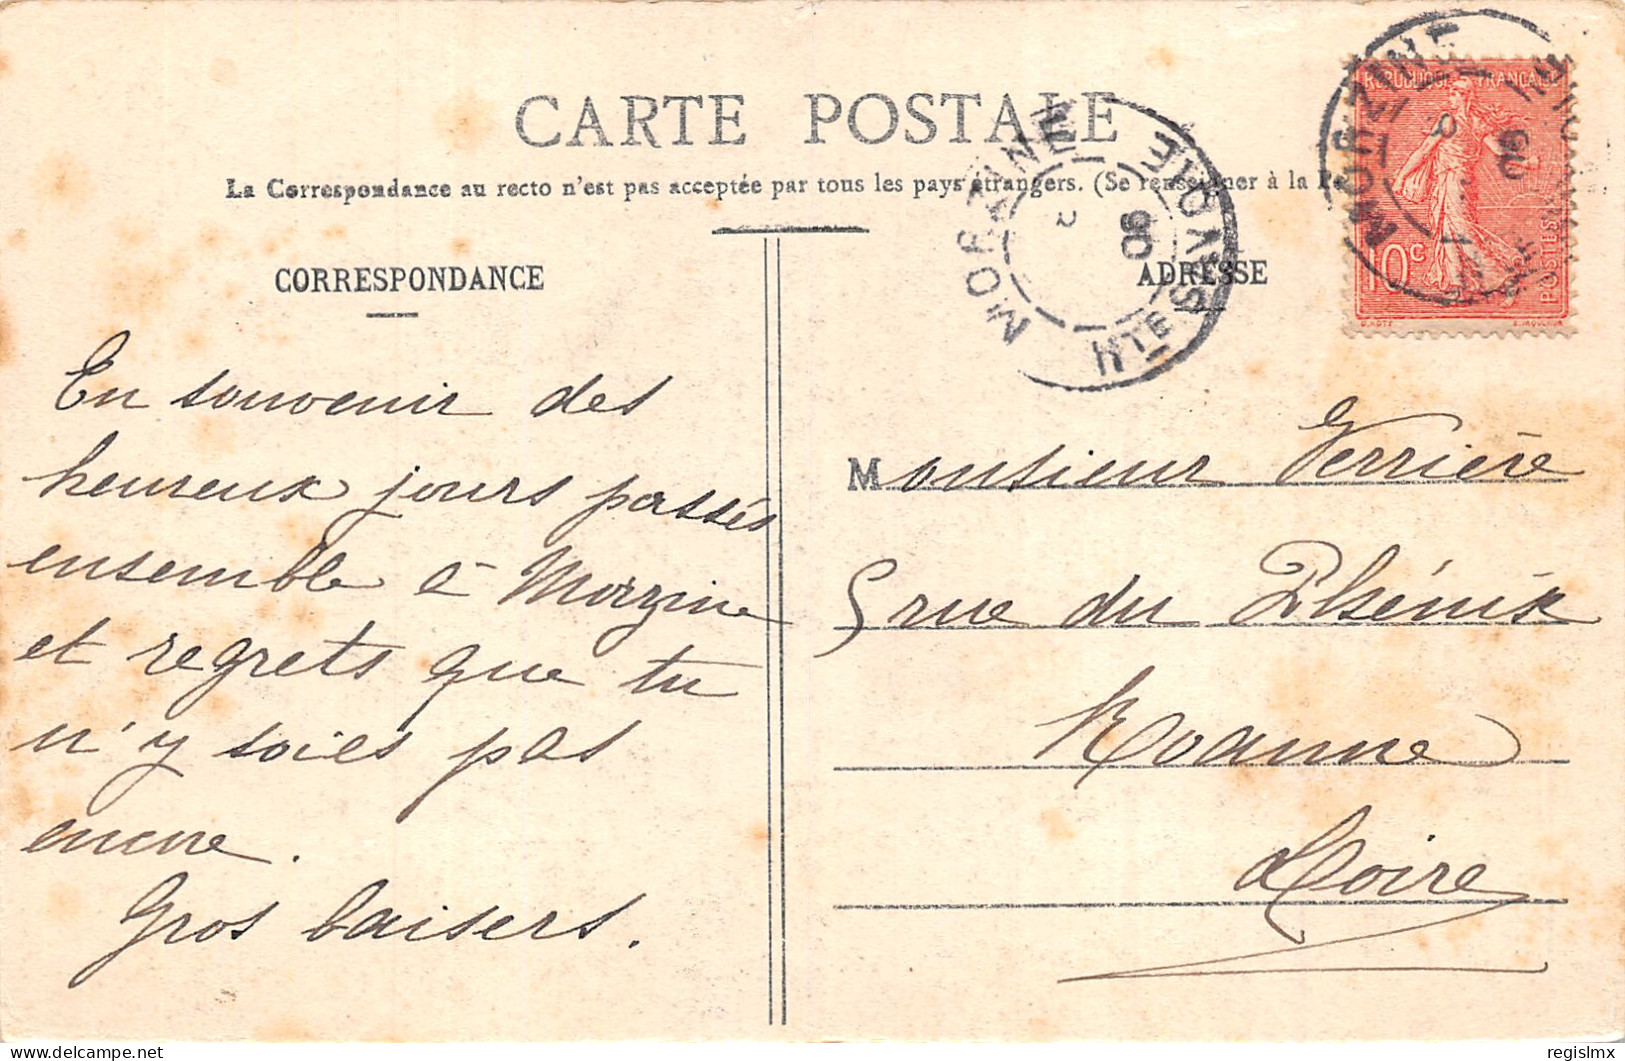 CARTE POSTALE
La Correspondance au recto n'est pas acceptée par tous les pays étrangers. (Se renseigner à la
CORRESPONDANCE
ADRESSE
MORZINE
HTE SAVOIE
06
MORZINE
06
REPUBLIQUE FRANÇAISE
10c
POSTES
O. ROTY
E. MOUCHON
En souvenir des
heureux jours passés
ensemble à Morzine
et regrets que tu
n'y soies pas
encore.
Gros baisers.
Monsieur Verrière
5 rue du Phénix
Roanne
Loire
regislmx
delcampe.net